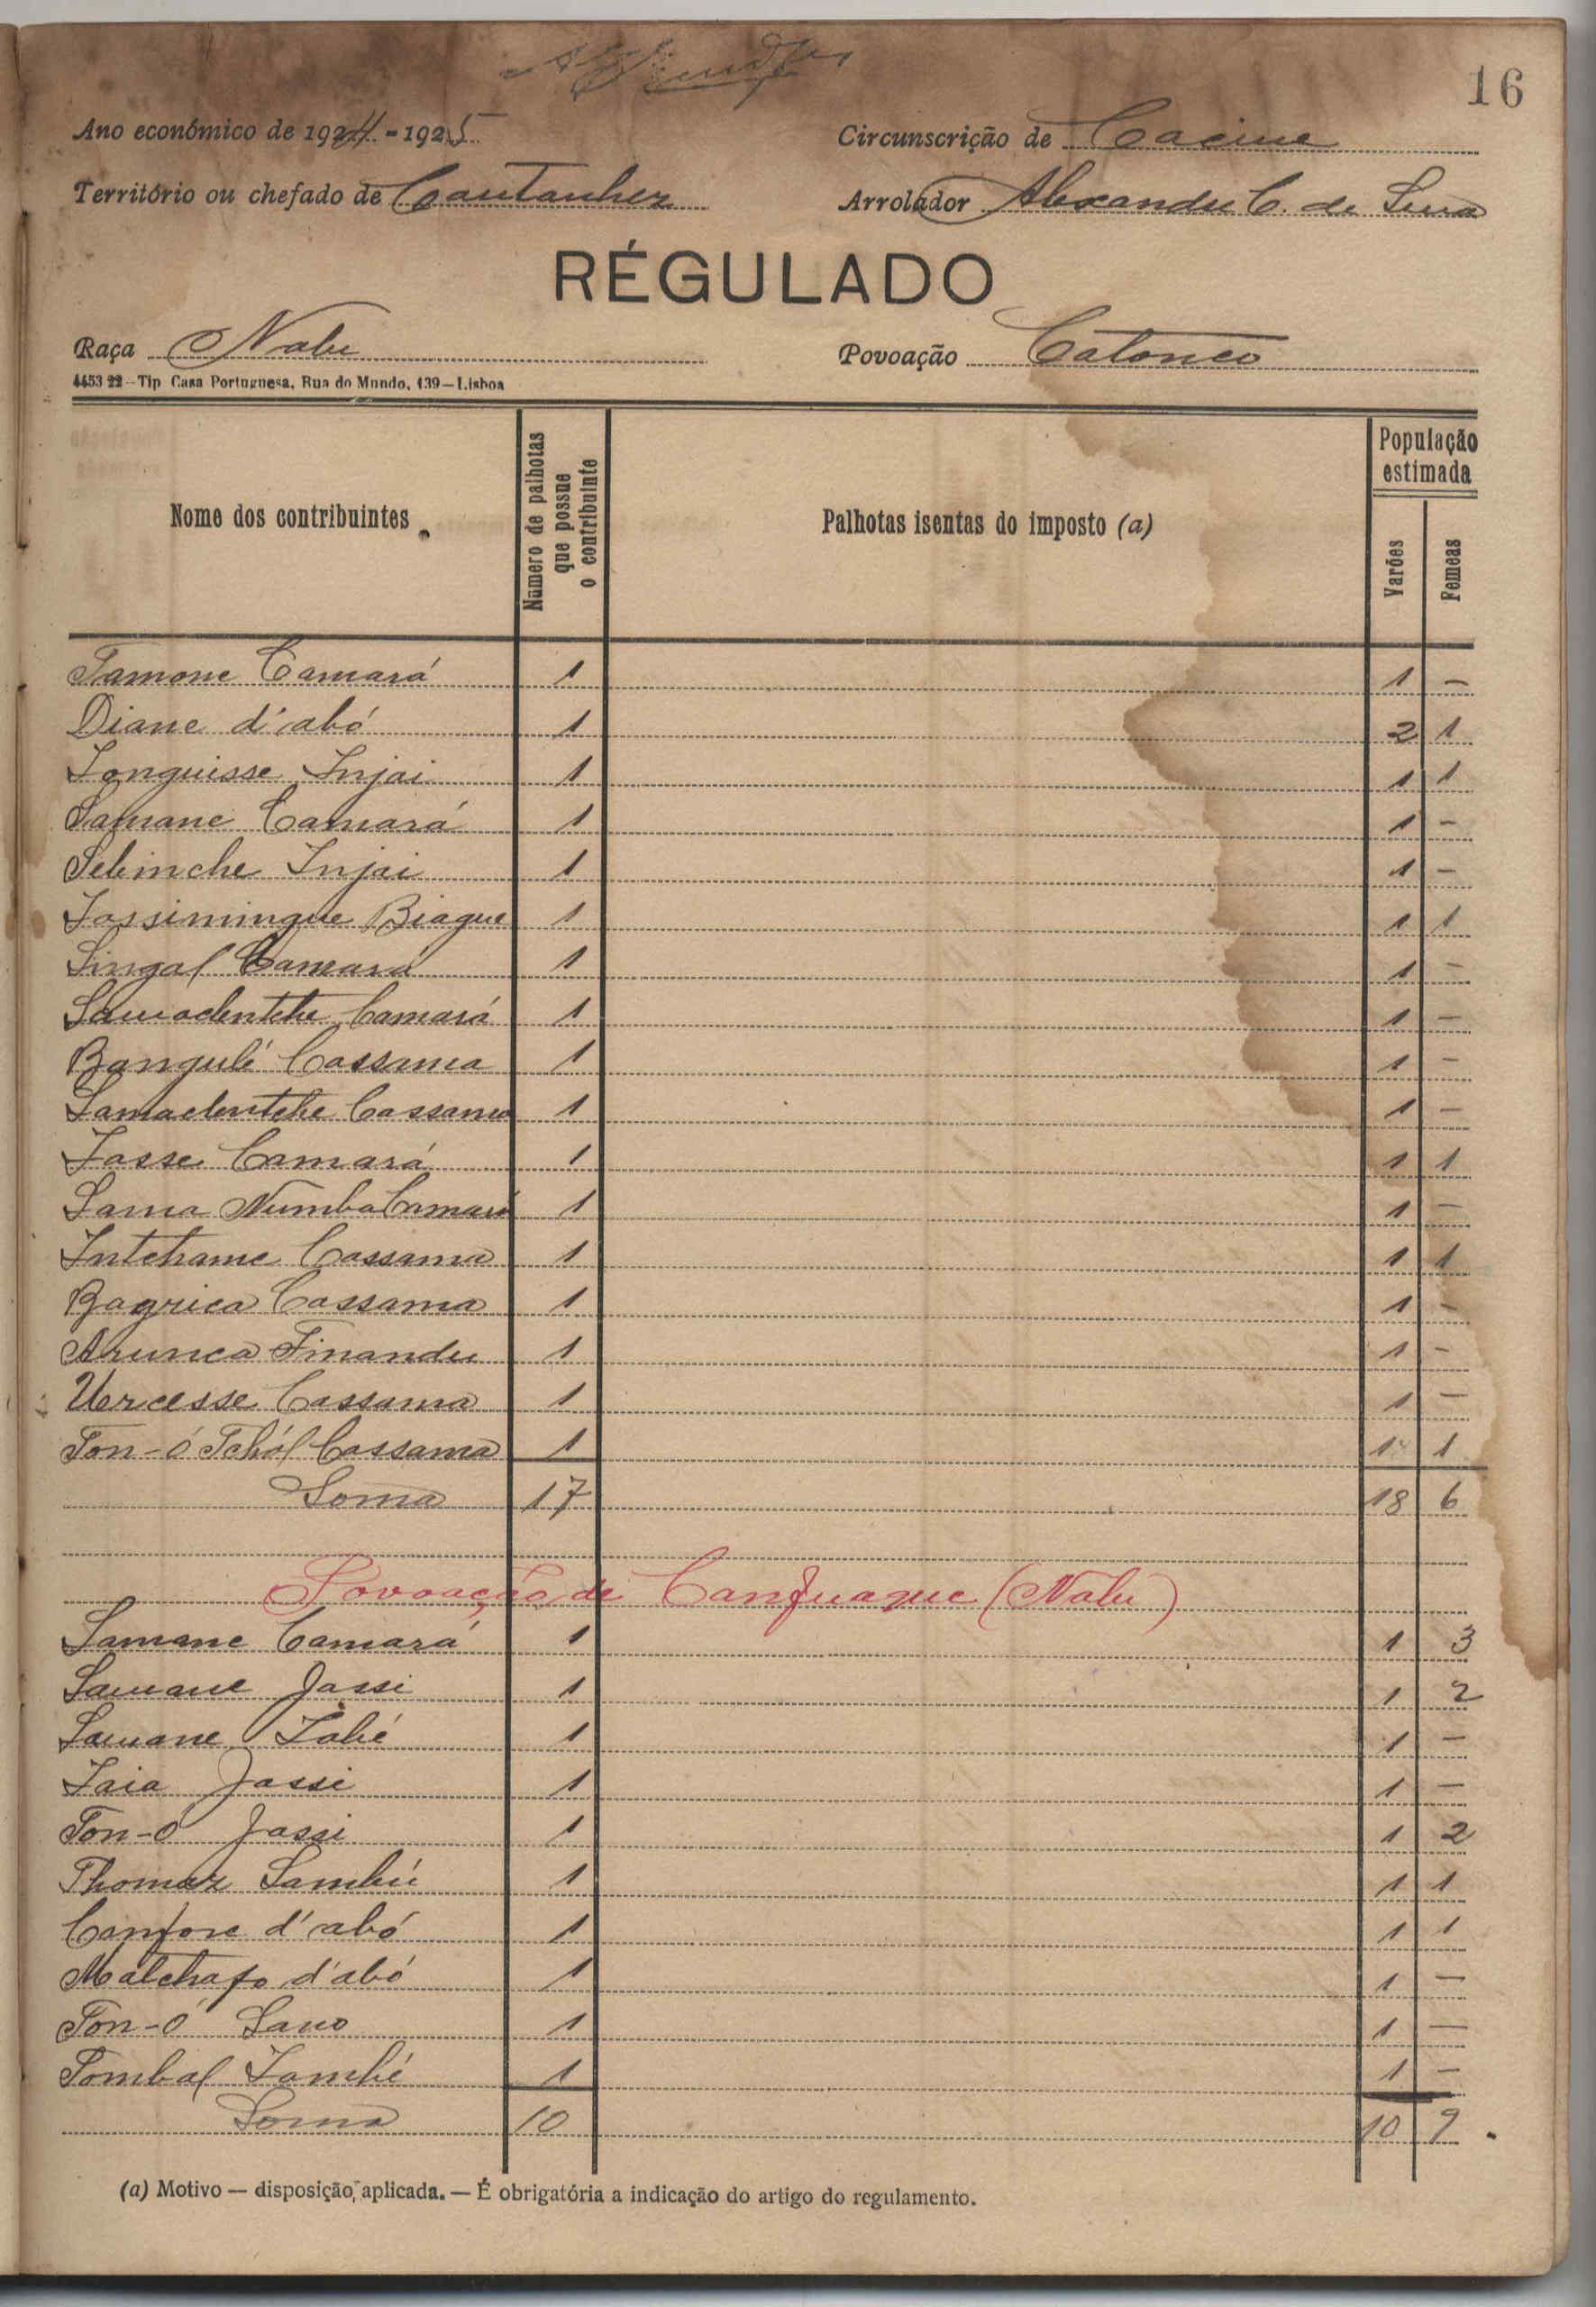 16
Ano económico de 1924-1925 Circunscrição de Cacine
Território ou chefado de Cantanhez Arrolador Alexandre C. de
RÉGULADO
Raça Nalu Povoação Catonco
4453 22--Tip Casa Portuguesa, Rua do Mundo, 139—Lisboa
Nome dos contribuintes Número de palhotas que possue o contribuinte Palhotas isentas do imposto (a) População estimada Varões Femeas
Tamone Camará 1 1 —
Diane d'abó 1 2 1
Longuisse Injai 1 1 1
Samane Camará 1 1 —
Sebinche Injai 1 1 —
Jassimingue Biague 1 1 1
Singal Camara 1 1 —
Samaclentche Camará 1 1 —
Bangulé Cassama 1 1 —
Samaclentche Cassama 1 1 —
Jasse Camará 1 1 1
Sama Numba Camará 1 1 —
Intchame Cassama 1 1 1
Bagrica Cassama 1 1 —
Arunca Finandu 1 1 —
Urcesse Cassama 1 1 —
Ton-ó Tchól Cassama 1 1 1
Soma 17 18 6
Povoação de Canfuaque (Nalú)
Samane Camará 1 1 3
Samane Jassi 1 1 2
Samane 1 1 —
Iaia Jassi 1 1 —
Ton-ó Jassi 1 1 2
Thomaz Sambú 1 1 1
Canfore d'abó 1 1 1
Malchafo d'abó 1 1 —
Ton-ó Sano 1 1 —
Tombal 1 1 —
Soma 10 10 9
(a) Motivo — disposição, aplicada. — É obrigatória a indicação do artigo do regulamento.